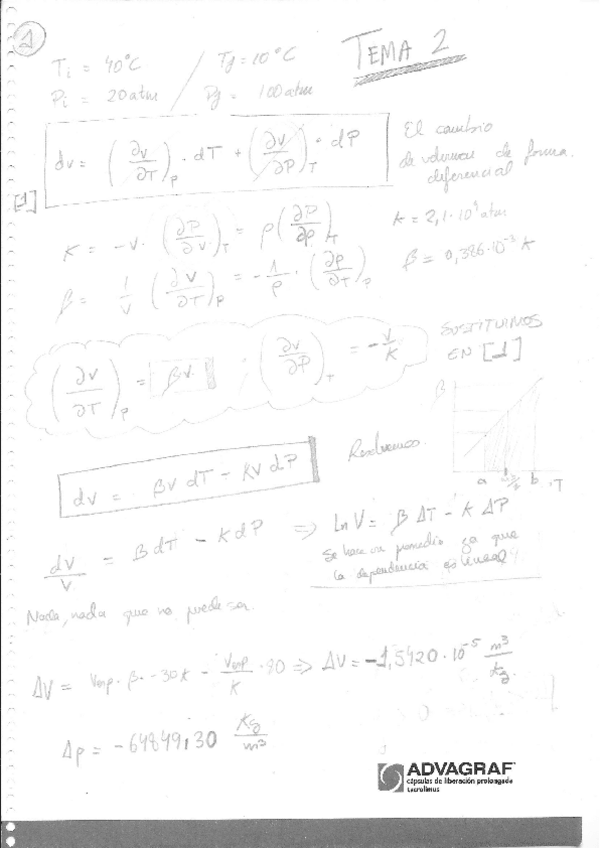 1
TEMA 2
Ti = 40°C / Tf = 10°C
Pi = 20 atm / Pf = 100 atm
dv = (∂v/∂T)P · dT + (∂v/∂P)T · dP
El cambio
de volumen de forma
diferencial
[1]
K = -v · (∂P/∂v)T = ρ(∂P/∂ρ)T
β = 1/v (∂v/∂T)P = -1/ρ · (∂ρ/∂T)P
β = 0,386·10⁻³ K
(∂v/∂T)P = βv ; (∂v/∂P)T = -v/K
SUSTITUIMOS
EN [1]
β
a b T
dv = βv dT - Kv dP
Resolvemos
dv/v = β dT - K dP ⇒ Ln V = β ΔT - K ΔP
Se hace un promedio ya que
la dependencia es lineal
Nada, nada que no puede ser.
ΔV = Vesp · β · -30K - Vesp/K · 80 ⇒ ΔV = -1,5420 · 10⁻⁵ m³/kg
Δρ = -64849,30 Kg/m³
ADVAGRAF
cápsulas de liberación prolongada
tacrolimus